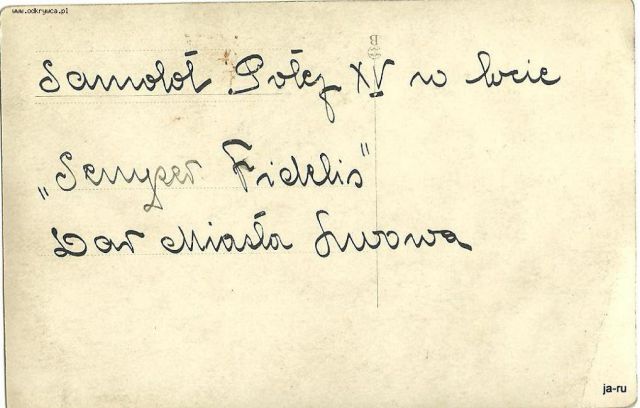 www.odkrywca.pl
B
Samolot Potez XV w locie
„Semper Fidelis"
Dar Miasta Lwowa
ja-ru